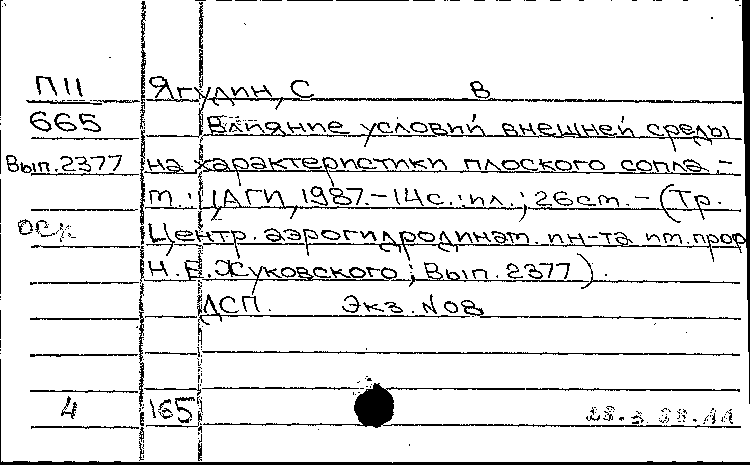 П11 Ягудин, С В
665 Влияние условий внешней среды
Вып.2377 на характеристики плоского сопла.-
м.: ЦАГИ, 1987.-14с.:ил.; 26см. - (Тр.
Центр. аэрогидродинам. ин-та им. проф
Н.Е. Жуковского; Вып. 2377).
ДСП. Экз. №08
4 165